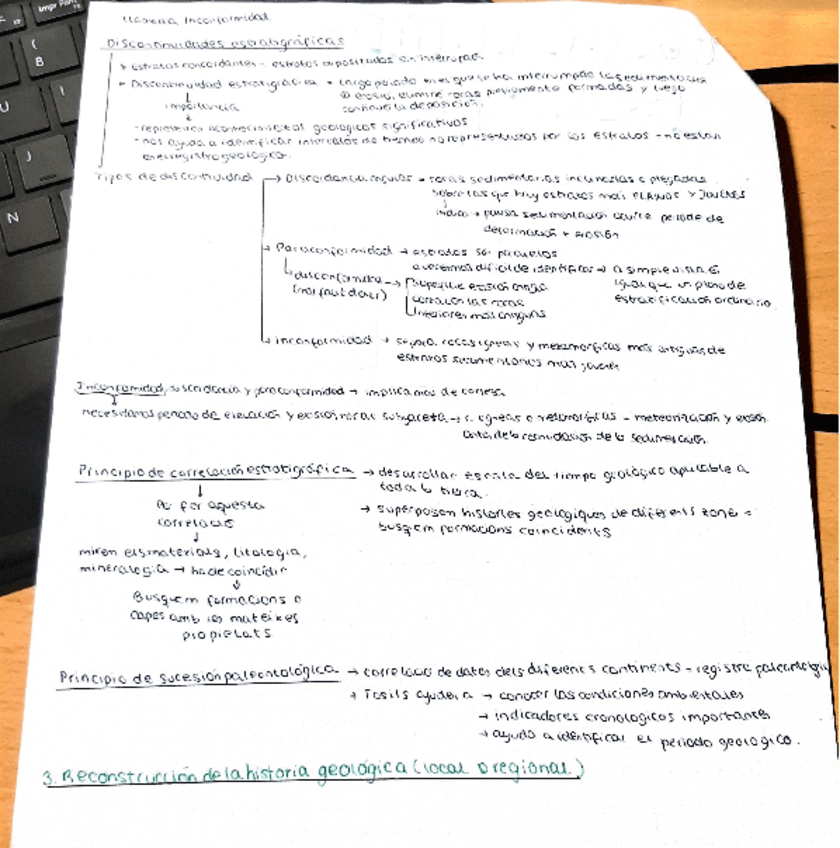 llamada Inconformidad
Discontinuidades estratigráficas
Estratos concordantes = estratos depositados sin interrupción
Discontinuidad estratigráfica = largo periodo en el que se ha interrumpido la sedimentación
erosión, elimine rocas previamente formadas y luego
importancia
continue la deposición.
- representan acontecimientos geológicos significativos
- nos ayuda a identificar intervalos de tiempo no representados por los estratos - no están
en el registro geológico.
Tipos de discontinuidad → Discordancia angular = rocas sedimentarias inclinadas o plegadas
sobre las que hay estratos más PLANOS Y JOVENES
indica → pausa sedimentación ocurre periodo de
deformación + erosión
→ Paraconformidad → estratos son paralelos
disconformidad → superficie erosión
a simple vista
igual que un plano de
estratificación ordinario
cortaron las rocas
inferiores más antiguas
→ inconformidad → separa rocas ígneas y metamórficas más antiguas de
estratos sedimentarios más jóvenes
Inconformidad, y paraconformidad → implica
necesitamos periodo de elevación y erosión → r. ígneas o metamórficas - meteorización y erosión
antes de la de la sedimentación.
Principio de correlación estratigráfica → desarrollar escala del tiempo geológico aplicable a
toda la tierra.
Per fer aquesta
correlació
→ superposen histories geologiques de diferents zone =
busquem formacions coincidents
miren els materials, litologia,
mineralogia → ha de coincidir
Busquem formacions o
capes amb les mateixes
propietats
Principio de sucesión paleontológica → correlació de dates dels diferents continents - registre paleontològic
→ Fosils ayuden a → conocer las condiciones ambientales
→ indicadores cronologicos importantes
→ ayuda a identificar el periodo geologico.
3. Reconstrucción de la historia geológica (local o regional)